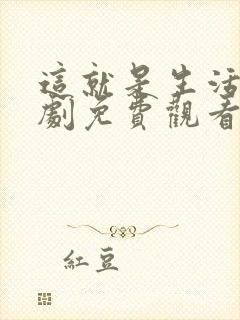 這就是生活
劇免費觀看
紅豆